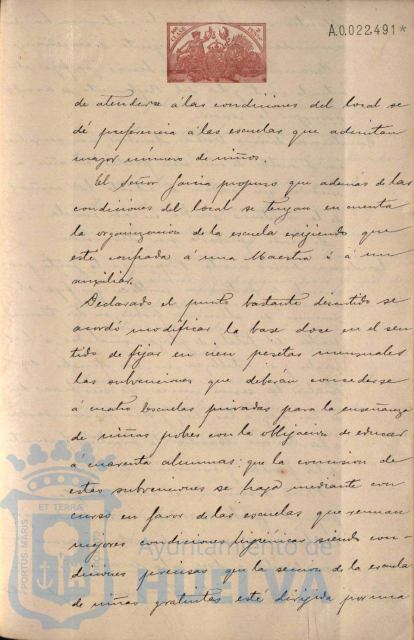 A.0.022.491*
de atenderse á las condiciones del local se
dé preferencia á las escuelas que admitan
mayor número de niños.
El Señor García propuso que ademas de las
condiciones del local se tengan en cuenta
la organizacion de la escuela exijiendo que
esté confiada á una Maestra ó á un
auxiliar.
Declarado el punto bastante discutido se
acordó modificar la base doce en el sen
tido de fijar en cien pesetas mensuales
las subvenciones que deberán concederse
á cuatro Escuelas privadas para la enseñanza
de niñas pobres con la obligacion de educar
a cuarenta alumnas: que la concesion de
estas subvenciones se haga mediante con
curso en favor de las escuelas que reunan
mejores condiciones higiénicas siendo con-
diciones precisas que la seccion de la escuela
de niñas gratuitas esté dirigida por una
PORTUS MARIS
ET TERRA
Ayuntamiento de
HUELVA